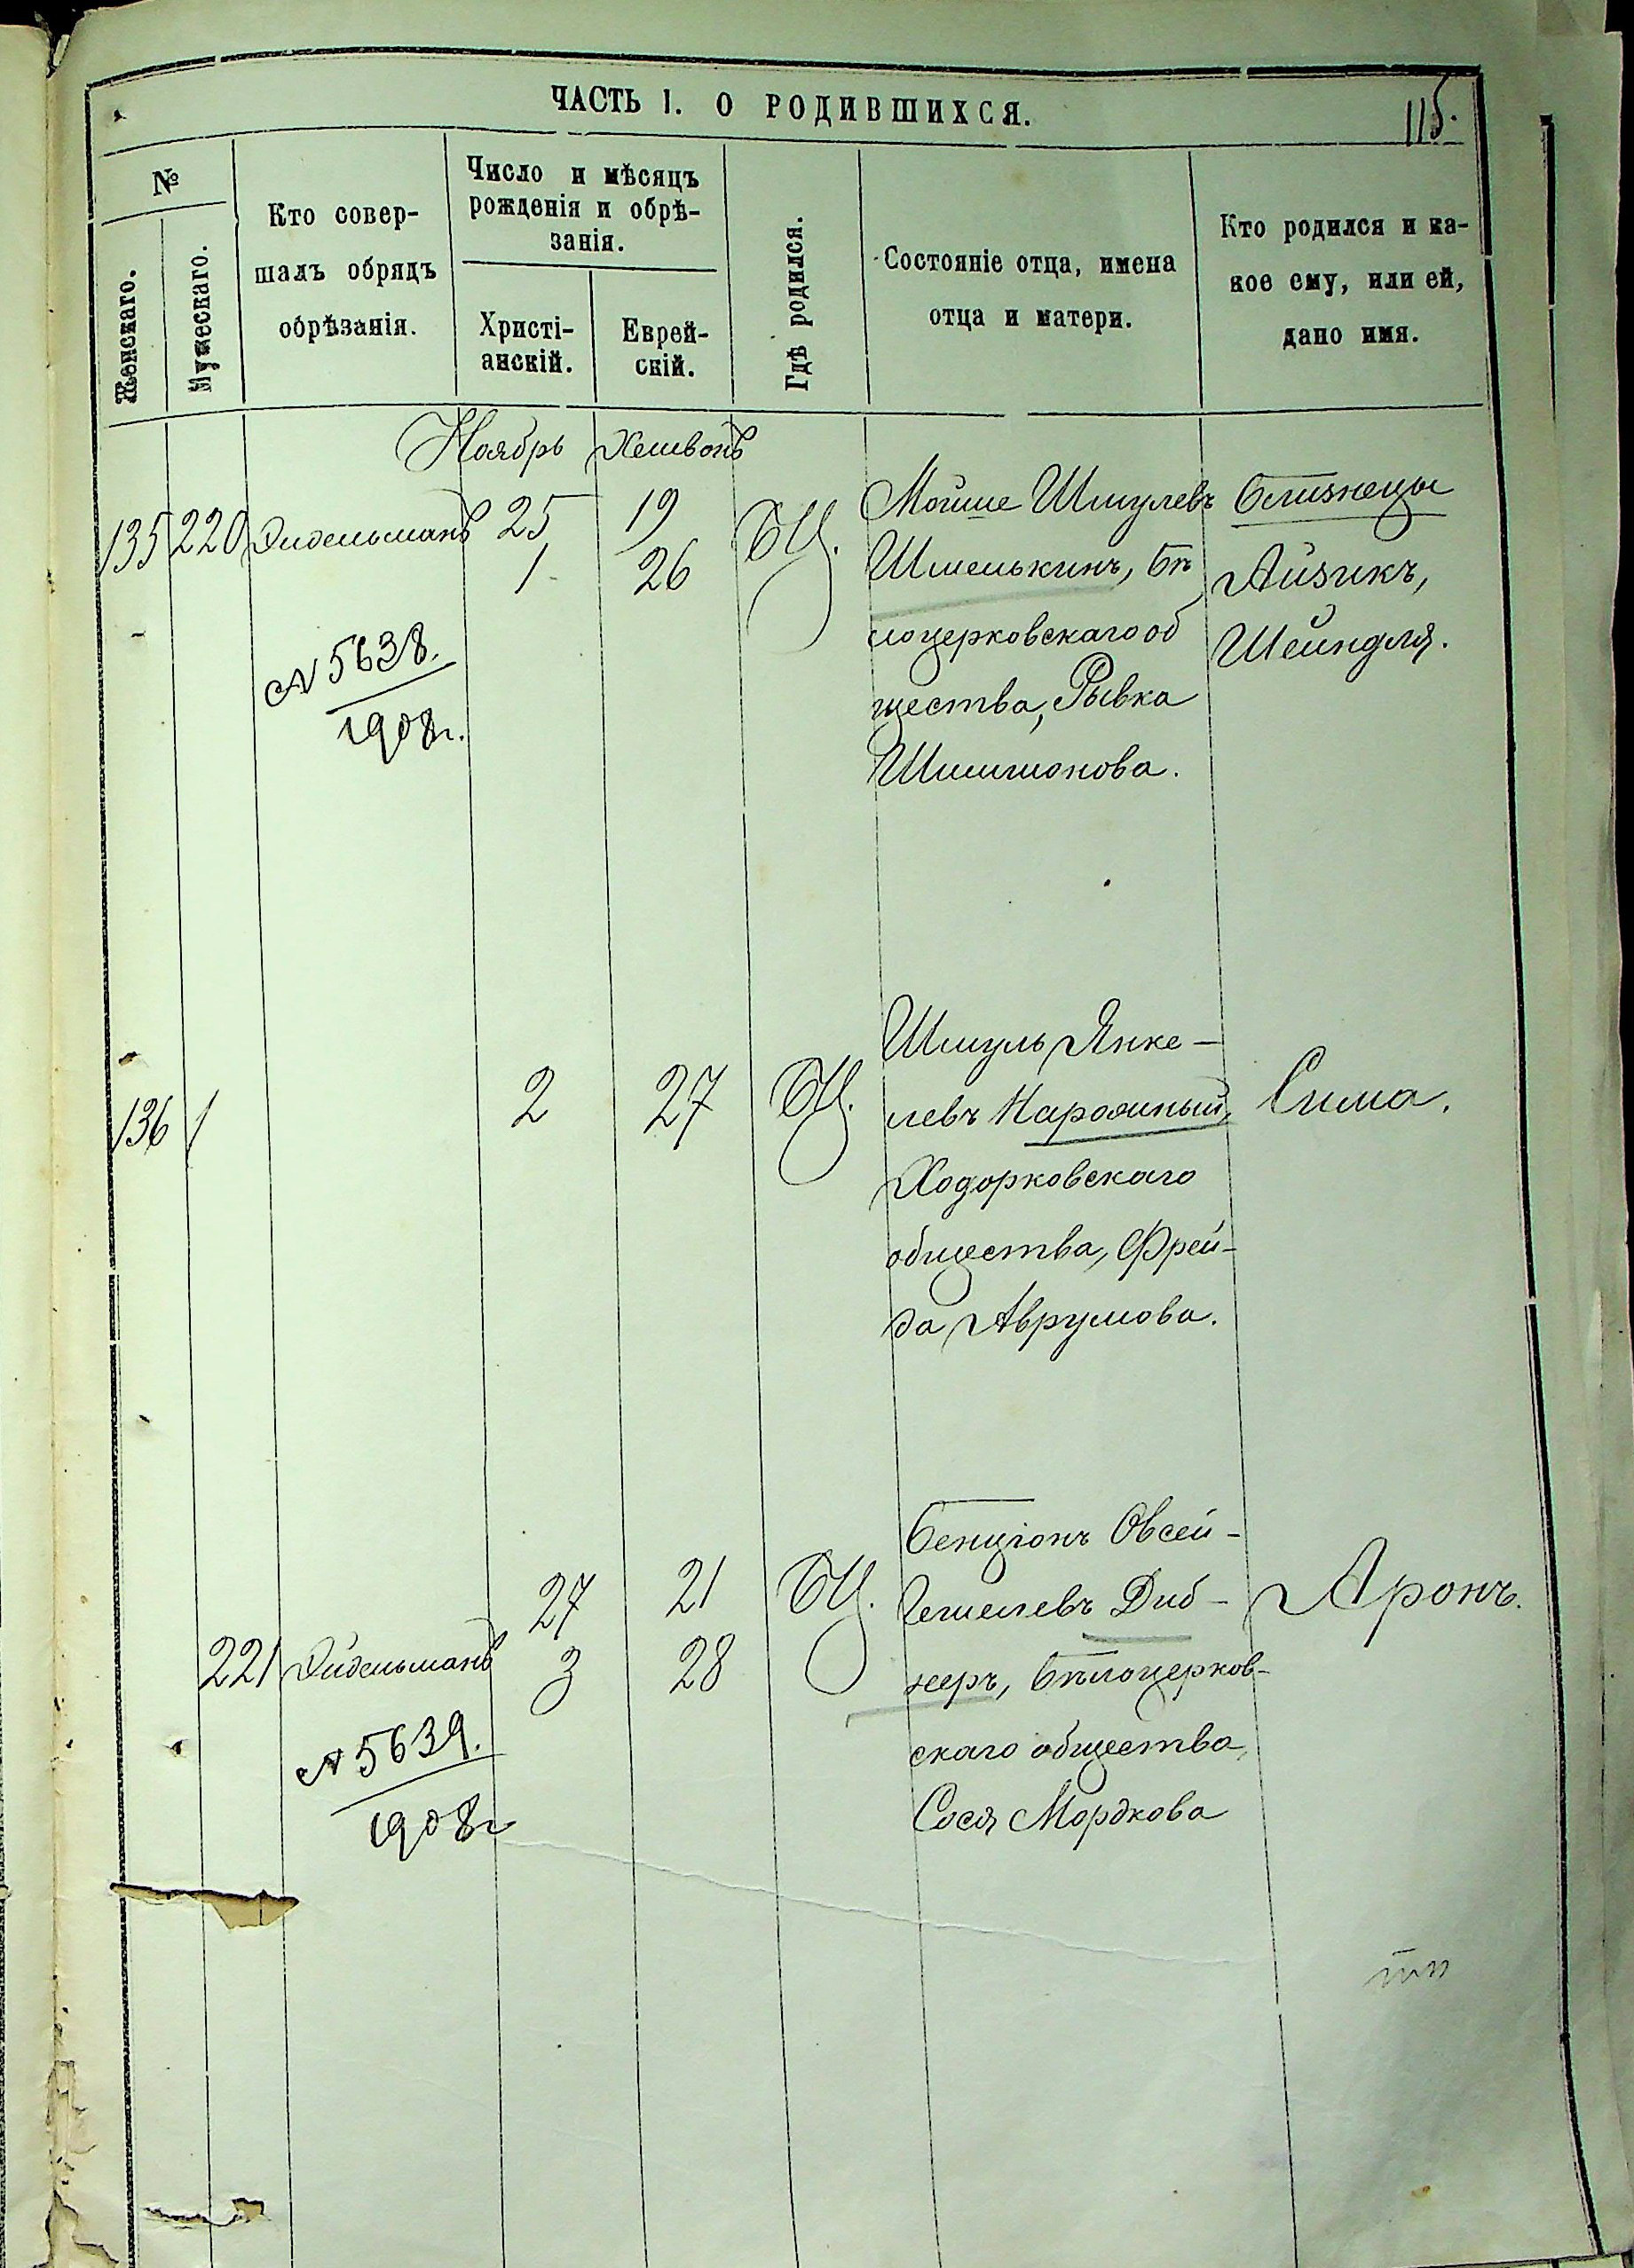 ЧАСТЬ I. О РОДИВШИХСЯ.
115.
№
Женскаго.
Мужескаго.
Кто совер-
шалъ обрядъ
обрѣзанія.
Число и мѣсяцъ
рожденія и обрѣ-
занія.
Христі-
анскій.
Еврей-
скій.
Гдѣ родился.
Состояніе отца, имена
отца и матери.
Кто родился и ка-
кое ему, или ей,
дано имя.
Ноябрь Хешвонъ
135 220 Эйдельманъ 25 19 БЦ.
1 26
Мойше Шмулевъ
Шмелькинъ, Бѣ
лоцерковскаго об
щества, Рывка
Шимшонова.
Близнецы
Айзикъ,
Шейндля.
№ 5638.
1908г.
136 / 2 27 БЦ.
Шмуль Янке-
левъ Нарожный,
Ходорковскаго
общества, Фрей-
да Аврумова.
Сима.
221 Эйдельманъ 27 21 БЦ.
3 28
Бенціонъ Овсей-
Гешелевъ Диб-
неръ, Бѣлоцерков-
скаго общества,
Сося Мордкова
Аронъ.
№ 5639.
1908г